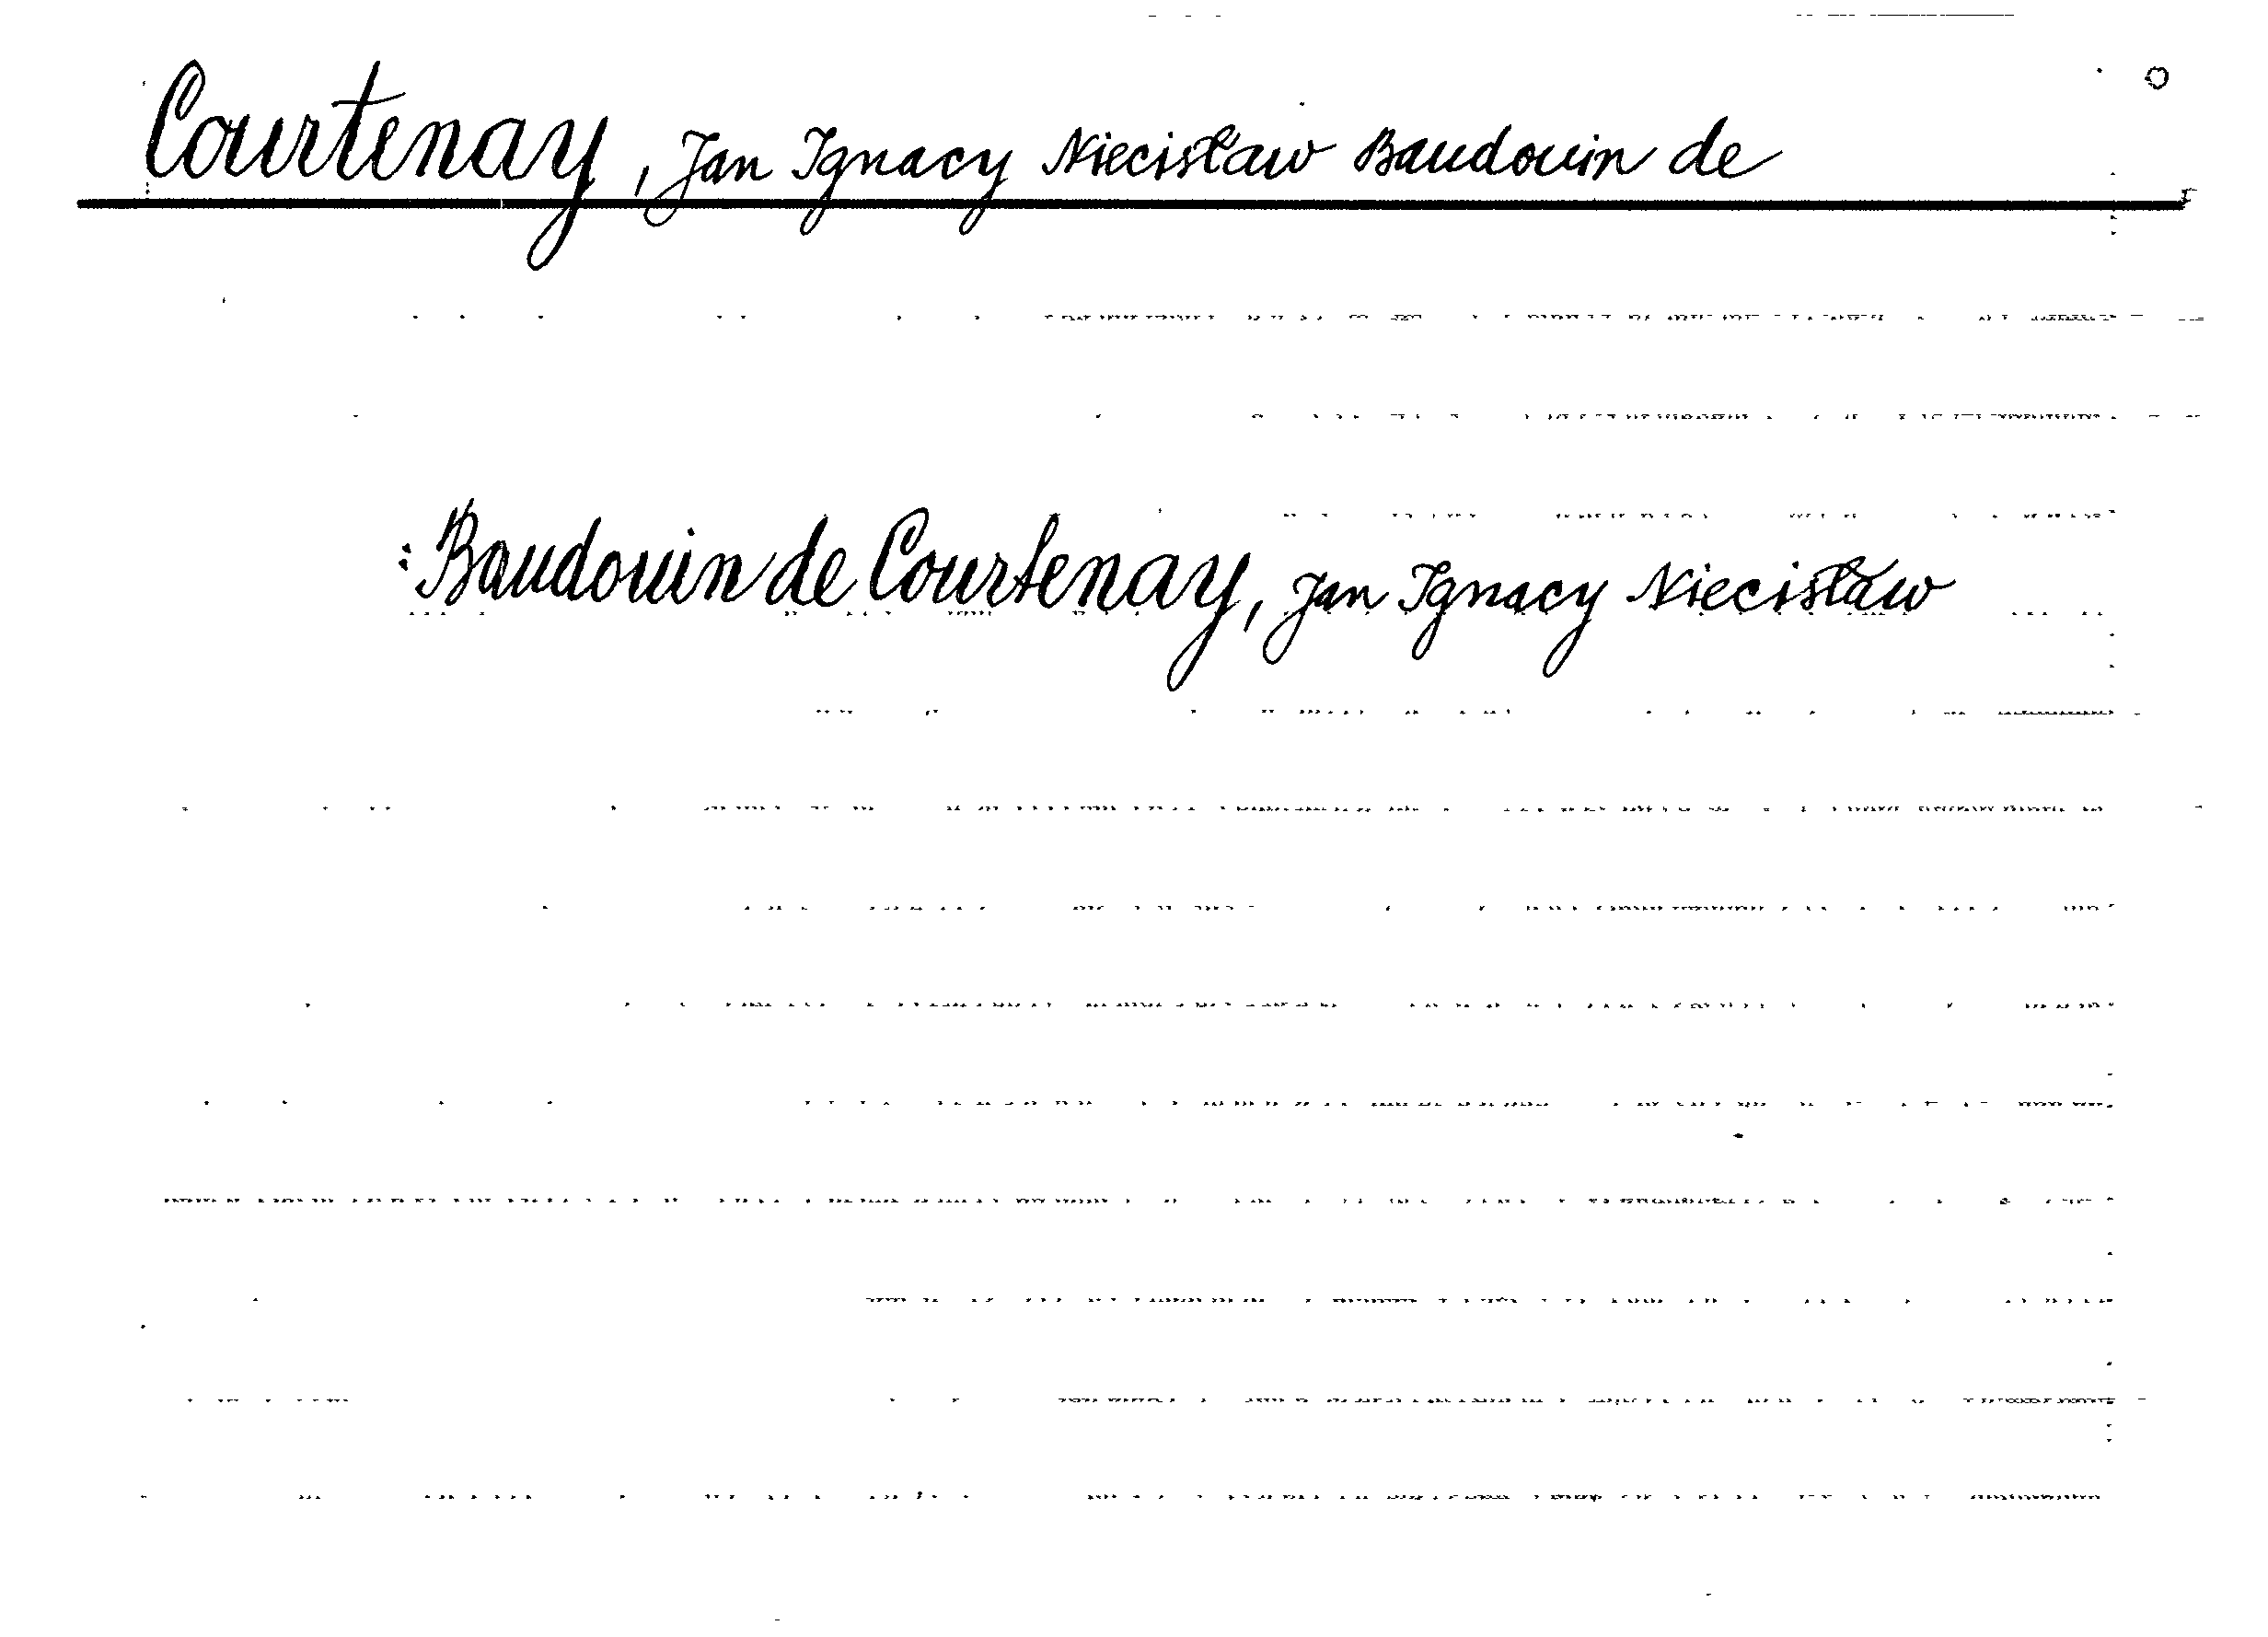 Courtenay, Jan Ignacy Niecisław Baudouin de
: Baudouin de Courtenay, Jan Ignacy Niecisław